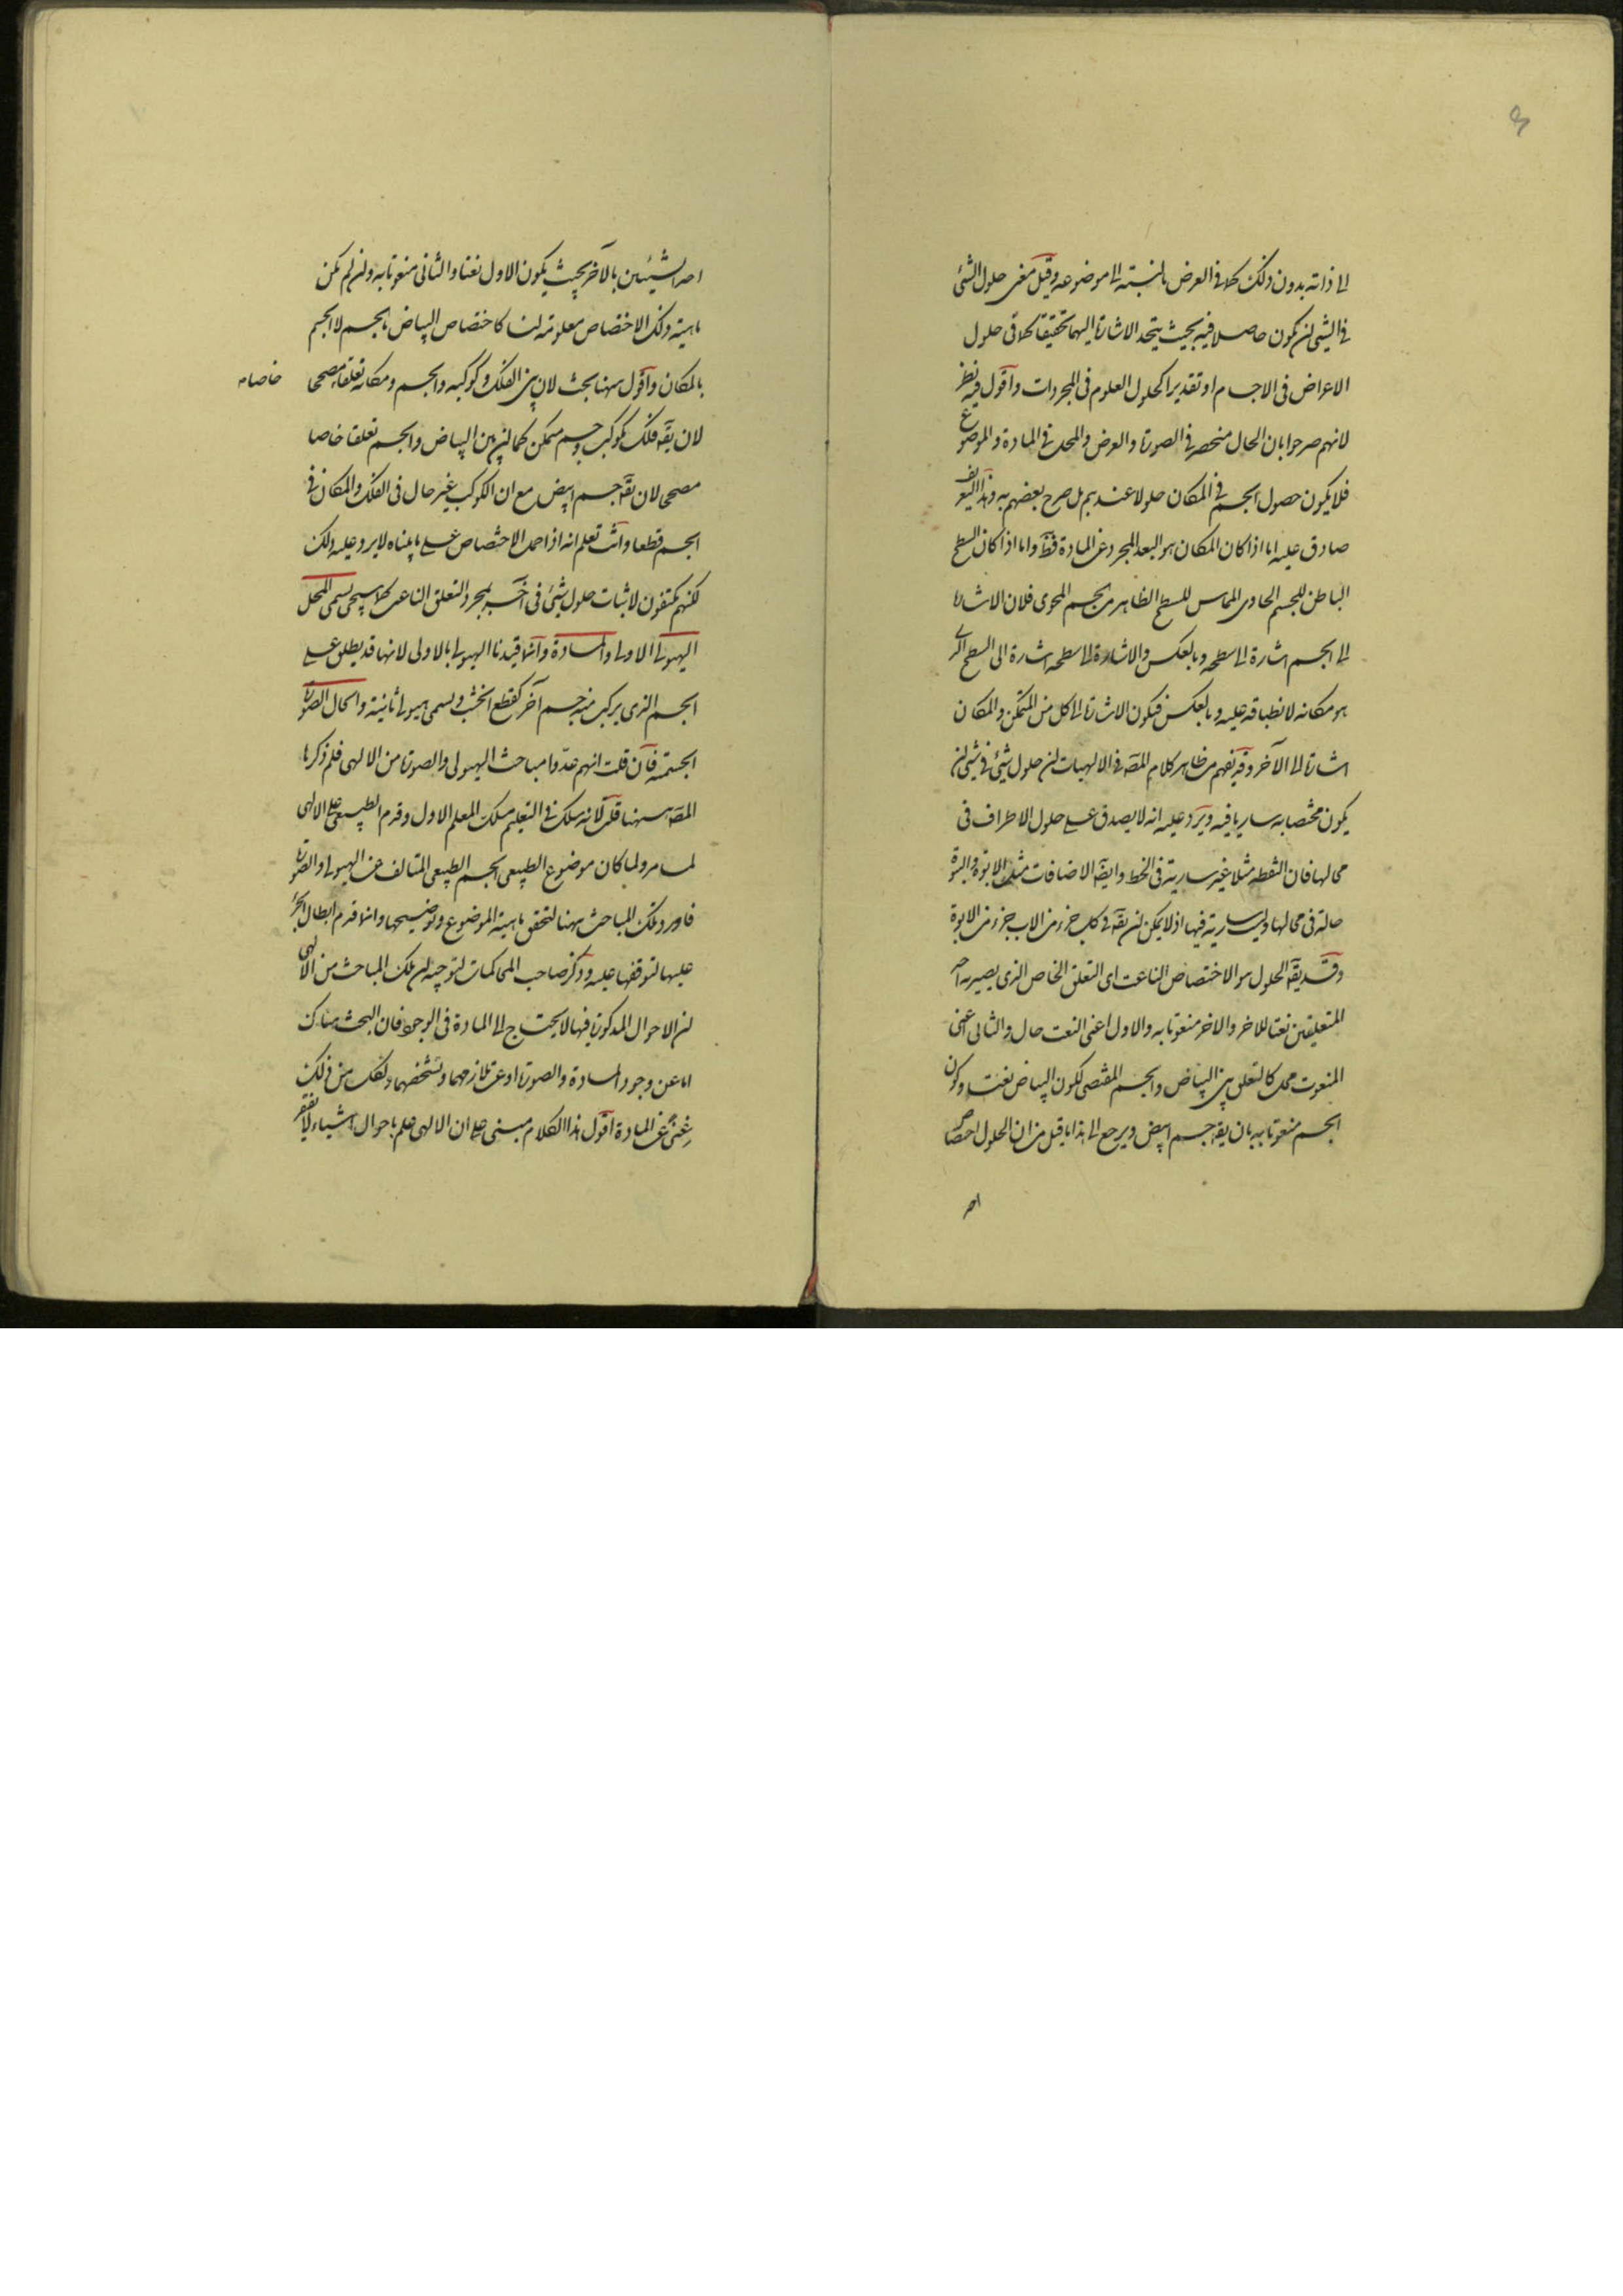 الى ذاته بدون ذلك كما فى العرض بالنسبة الى موضوعه وقيل معنى حلول الشئ
فى الشئ ان يكون حاصلا فيه بحيث يتحد الاشارة اليهما تحقيقا كما فى حلول
الاعراض فى الاجسام او تقديرا كحلول العلوم فى المجردات واقول فيه نظر
لانهم صرحوا بان الحال منحصر فى الصورة والعرض والمحل فى المادة والموضوع
فلا يكون حصول الجسم فى المكان حلولا عندهم بل صرح بعضهم به وهذا التعريف
صادق عليه اما اذا كان المكان هو البعد المجرد عن المادة فظ واما اذا كان السطح
الباطن للجسم الحاوى المماس للسطح الظاهر من الجسم المحوى فلان الاشارة
الى الجسم اشارة الى سطحه وبالعكس والاشارة الى سطحه اشارة الى السطح الذى
هو مكانه لانطباقه عليه وبالعكس فيكون الاشارة الى كل من المتمكن والمكان
اشارة الى الآخر وقد يفهم من ظاهر كلام المصـ فى الالهيات ان حلول شئ فى شئ ان
يكون مختصا به ساريا فيه ويرد عليه انه لا يصدق على حلول الاطراف فى
محالها فان النقطة مثلا غير سارية فى الخط وايضا الاضافات مثل الابوة والبنوة
حالة فى محالها وليست سارية فيها اذ لا يمكن ان يقـ فى كل جزء من الاب جزء من الابوة
وقد يقـ الحلول هو الاختصاص الناعت اى التعلق الخاص الذى يصير به احد
المتعلقين نعتا للاخر والاخر منعوتا به والاول اعنى النعت حال والثانى اعنى
المنعوت محل كالتعلق بين البياض والجسم المقتضى لكون البياض نعتا وكون
الجسم منعوتا به بان يقـ جسم ابيض ويرجع الى هذا ما قيل من ان الحلول اختصاص
احد
احد الشيئين بالآخر بحيث يكون الاول نعتا والثانى منعوتا به وان لم يكن
ماهية ذلك الاختصاص معلومة لنا كاختصاص البياض بالجسم لا الجسم
بالمكان واقول ههنا بحث لان بين الفلك وكوكبه والجسم ومكانه تعلقا مصححا
خاصا
لان يقـ فلك مكوكب وجسم متمكن كما ان بين البياض والجسم تعلقا خاصا
مصححا لان يقـ جسم ابيض مع ان الكوكب غير حال فى الفلك والمكان فى
الجسم قطعا وانت تعلم انه اذا حمل الاختصاص على ما بيناه لا يرد عليه ذلك
لكنهم يكتفون لاثبات حلول شئ فى آخر بمجرد التعلق الناعت كما سيجئ يسمى المحل
الهيولى الاولى والمادة وانما قيدنا الهيولى بالاولى لانها قد يطلق على
الجسم الذى يركب منه جسم آخر كقطع الخشب ويسمى هيولى ثانية والحال الصورة
الجسمية فان قلت انهم عدوا مباحث الهيولى والصورة من الالهى فلم ذكرها
المصـ ههنا قلت لانه سلك فى التعليم مسلك المعلم الاول وقدم الطبيعى على الالهى
لما مر ولما كان موضوع الطبيعى الجسم الطبيعى المتألف من الهيولى والصورة
فاورد تلك المباحث ههنا لتحقق ماهية الموضوع وتوضيحها وانما قدم ابطال الجزء
عليها لتوقفها عليه وذكر صاحب المحاكمات لتوجيه ان تلك المباحث من الالهى
ان الاحوال المذكورة فيها لا يحتاج الى المادة فى الوجود فان البحث هناك
اما عن وجود المادة والصورة او عن تلازمهما وتشخصهما وكل من ذلك
غنى عن المادة اقول هذا الكلام مبنى على ان الالهى علم باحوال اشياء لا يفتقر